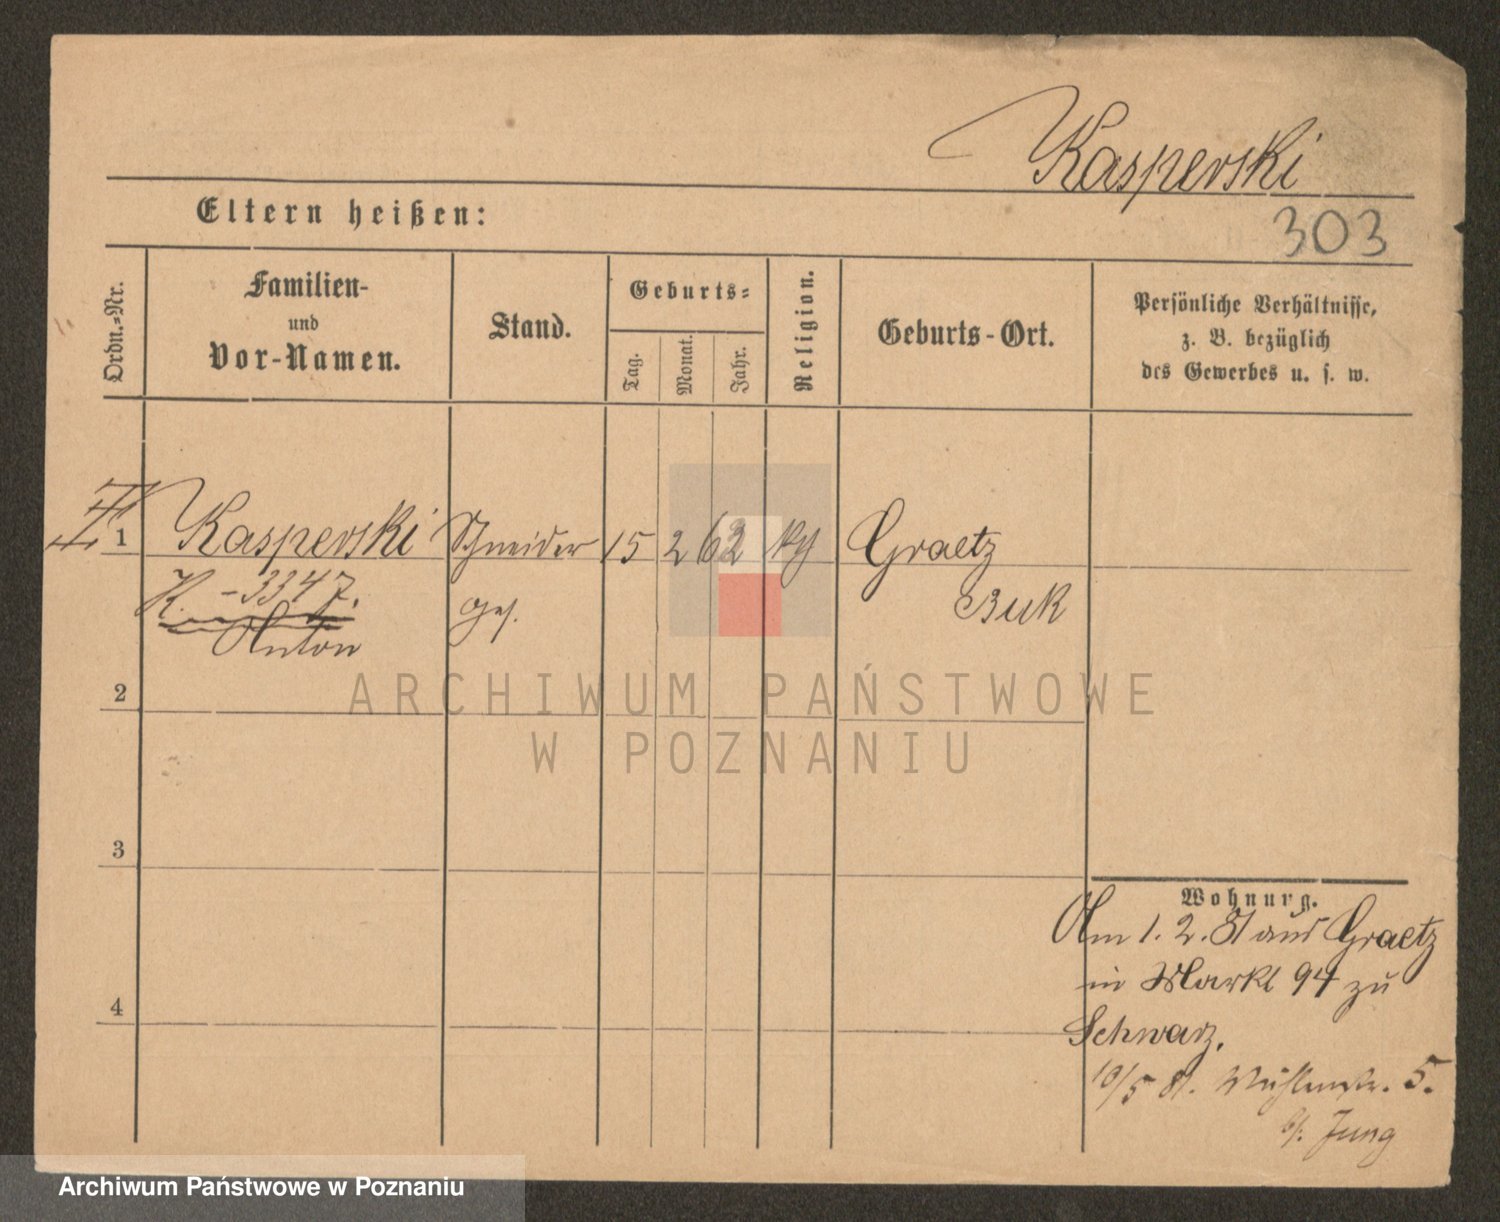 Kasperski
Eltern heißen:
303
Ordn.=Nr.
Familien-
und
Vor-Namen.
Stand.
Geburts=
Tag.
Monat.
Jahr.
Religion.
Geburts-Ort.
Persönliche Verhältnisse,
z. B. bezüglich
des Gewerbes u. s. w.
1 Kasperski Schneider 15 2 62 Graetz
K. -3347. ges. Buk
Anton
2
ARCHIWUM PAŃSTWOWE
W POZNANIU
3
Wohnung.
Am 1. 2. 81 aus Graetz
in Markt 94 zu
4
Schwarz.
10/5 81. Mühlenstr. 5.
b/. Jung
Archiwum Państwowe w Poznaniu